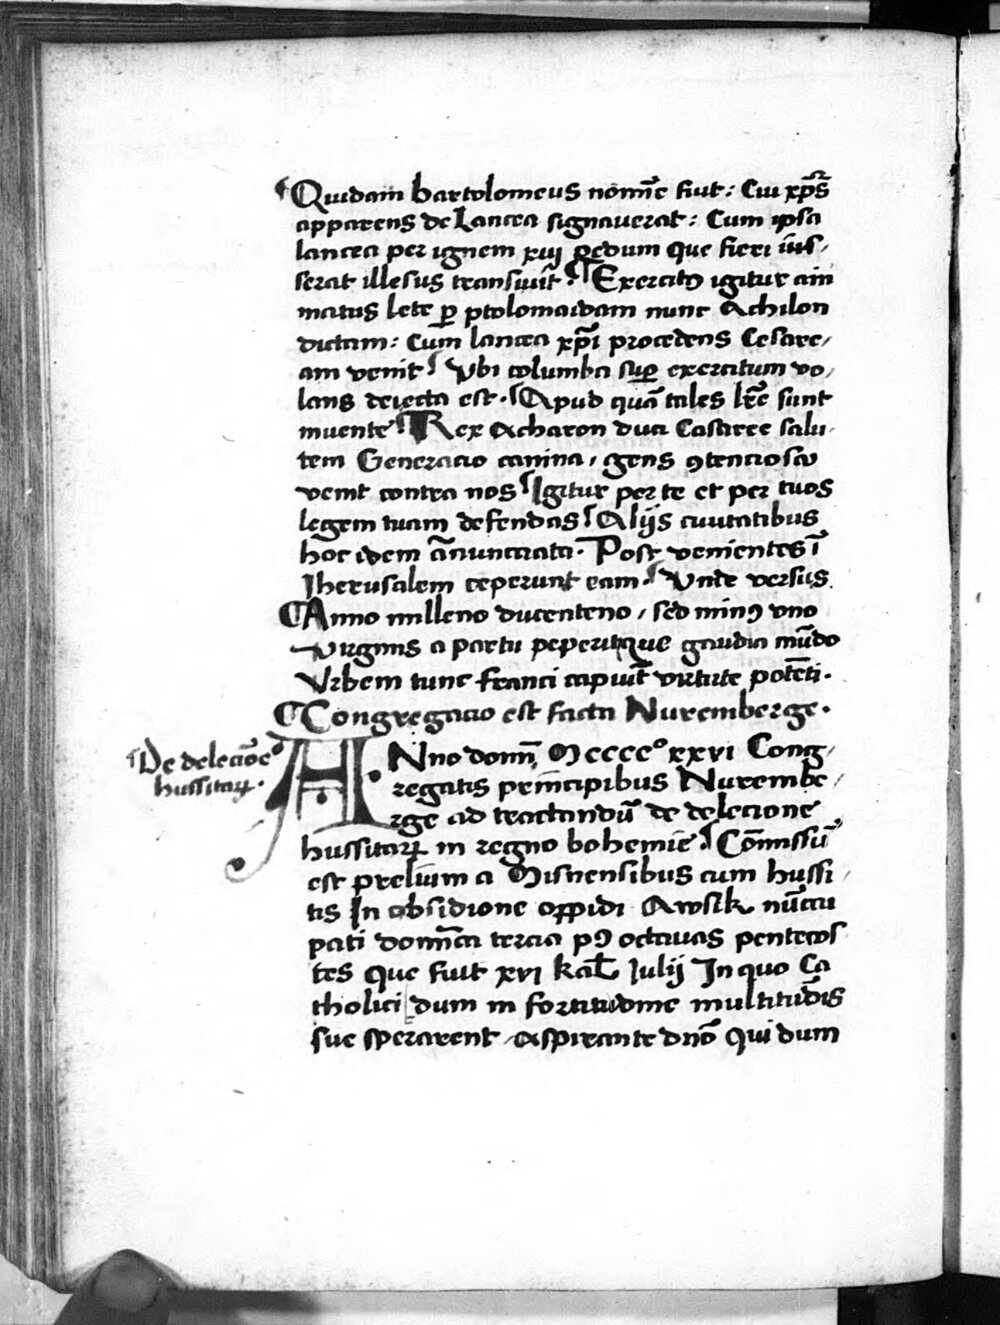 Quidam bartolomeus nomīe fuit: Cui xp̄s
apparens de Lancea signauerat: Cum ipsa
lancea per ignem xiij pedum que fieri ius/
serat illesus transiuit Exercitꝰ igitur ani
matus lete ꝑ ptolomaidam nunc Achilon
dictam: Cum lancea xp̄i procedens Cesare/
am venit Vbi columba suꝑ exercitum vo/
lans deiecta est. Apud quā tales lr̄e sunt
inuente Rex Acharon duci Cesaree salu
tem Generacio canina, gens ꝯtenciosa
venit contra nos Igitur per te et per tuos
legem tuam defendas Alijs ciuitatibus
hoc idem ānunciata. Post venientes ī
Jherusalem ceperunt eam. Vnde versus
Anno milleno ducenteno, sed minꝰ vno
virginis a partu peperit que gaudia mūdo
Vrbem tunc franci capiūt virtute potēti.
Congregacio est facta Nuremberge.
De deleciōe
hussitaꝝ.
ANno domī Mccccº xxvi Cong/
regatis principibus Nurembe/
rge ad tractandū de delecione
hussitaꝝ in regno bohemie Cōmissū
est prelium a Misnensibus cum hussi/
tis In obsidione oppidi Awsik nūcu
pati domīca tercia pꝰ octauas pentecos
tes que fuit xvi kal Julij In quo Ca
tholici dum in fortitudine multitudīs
sue sperarent, aspirante dn̄o qui dum